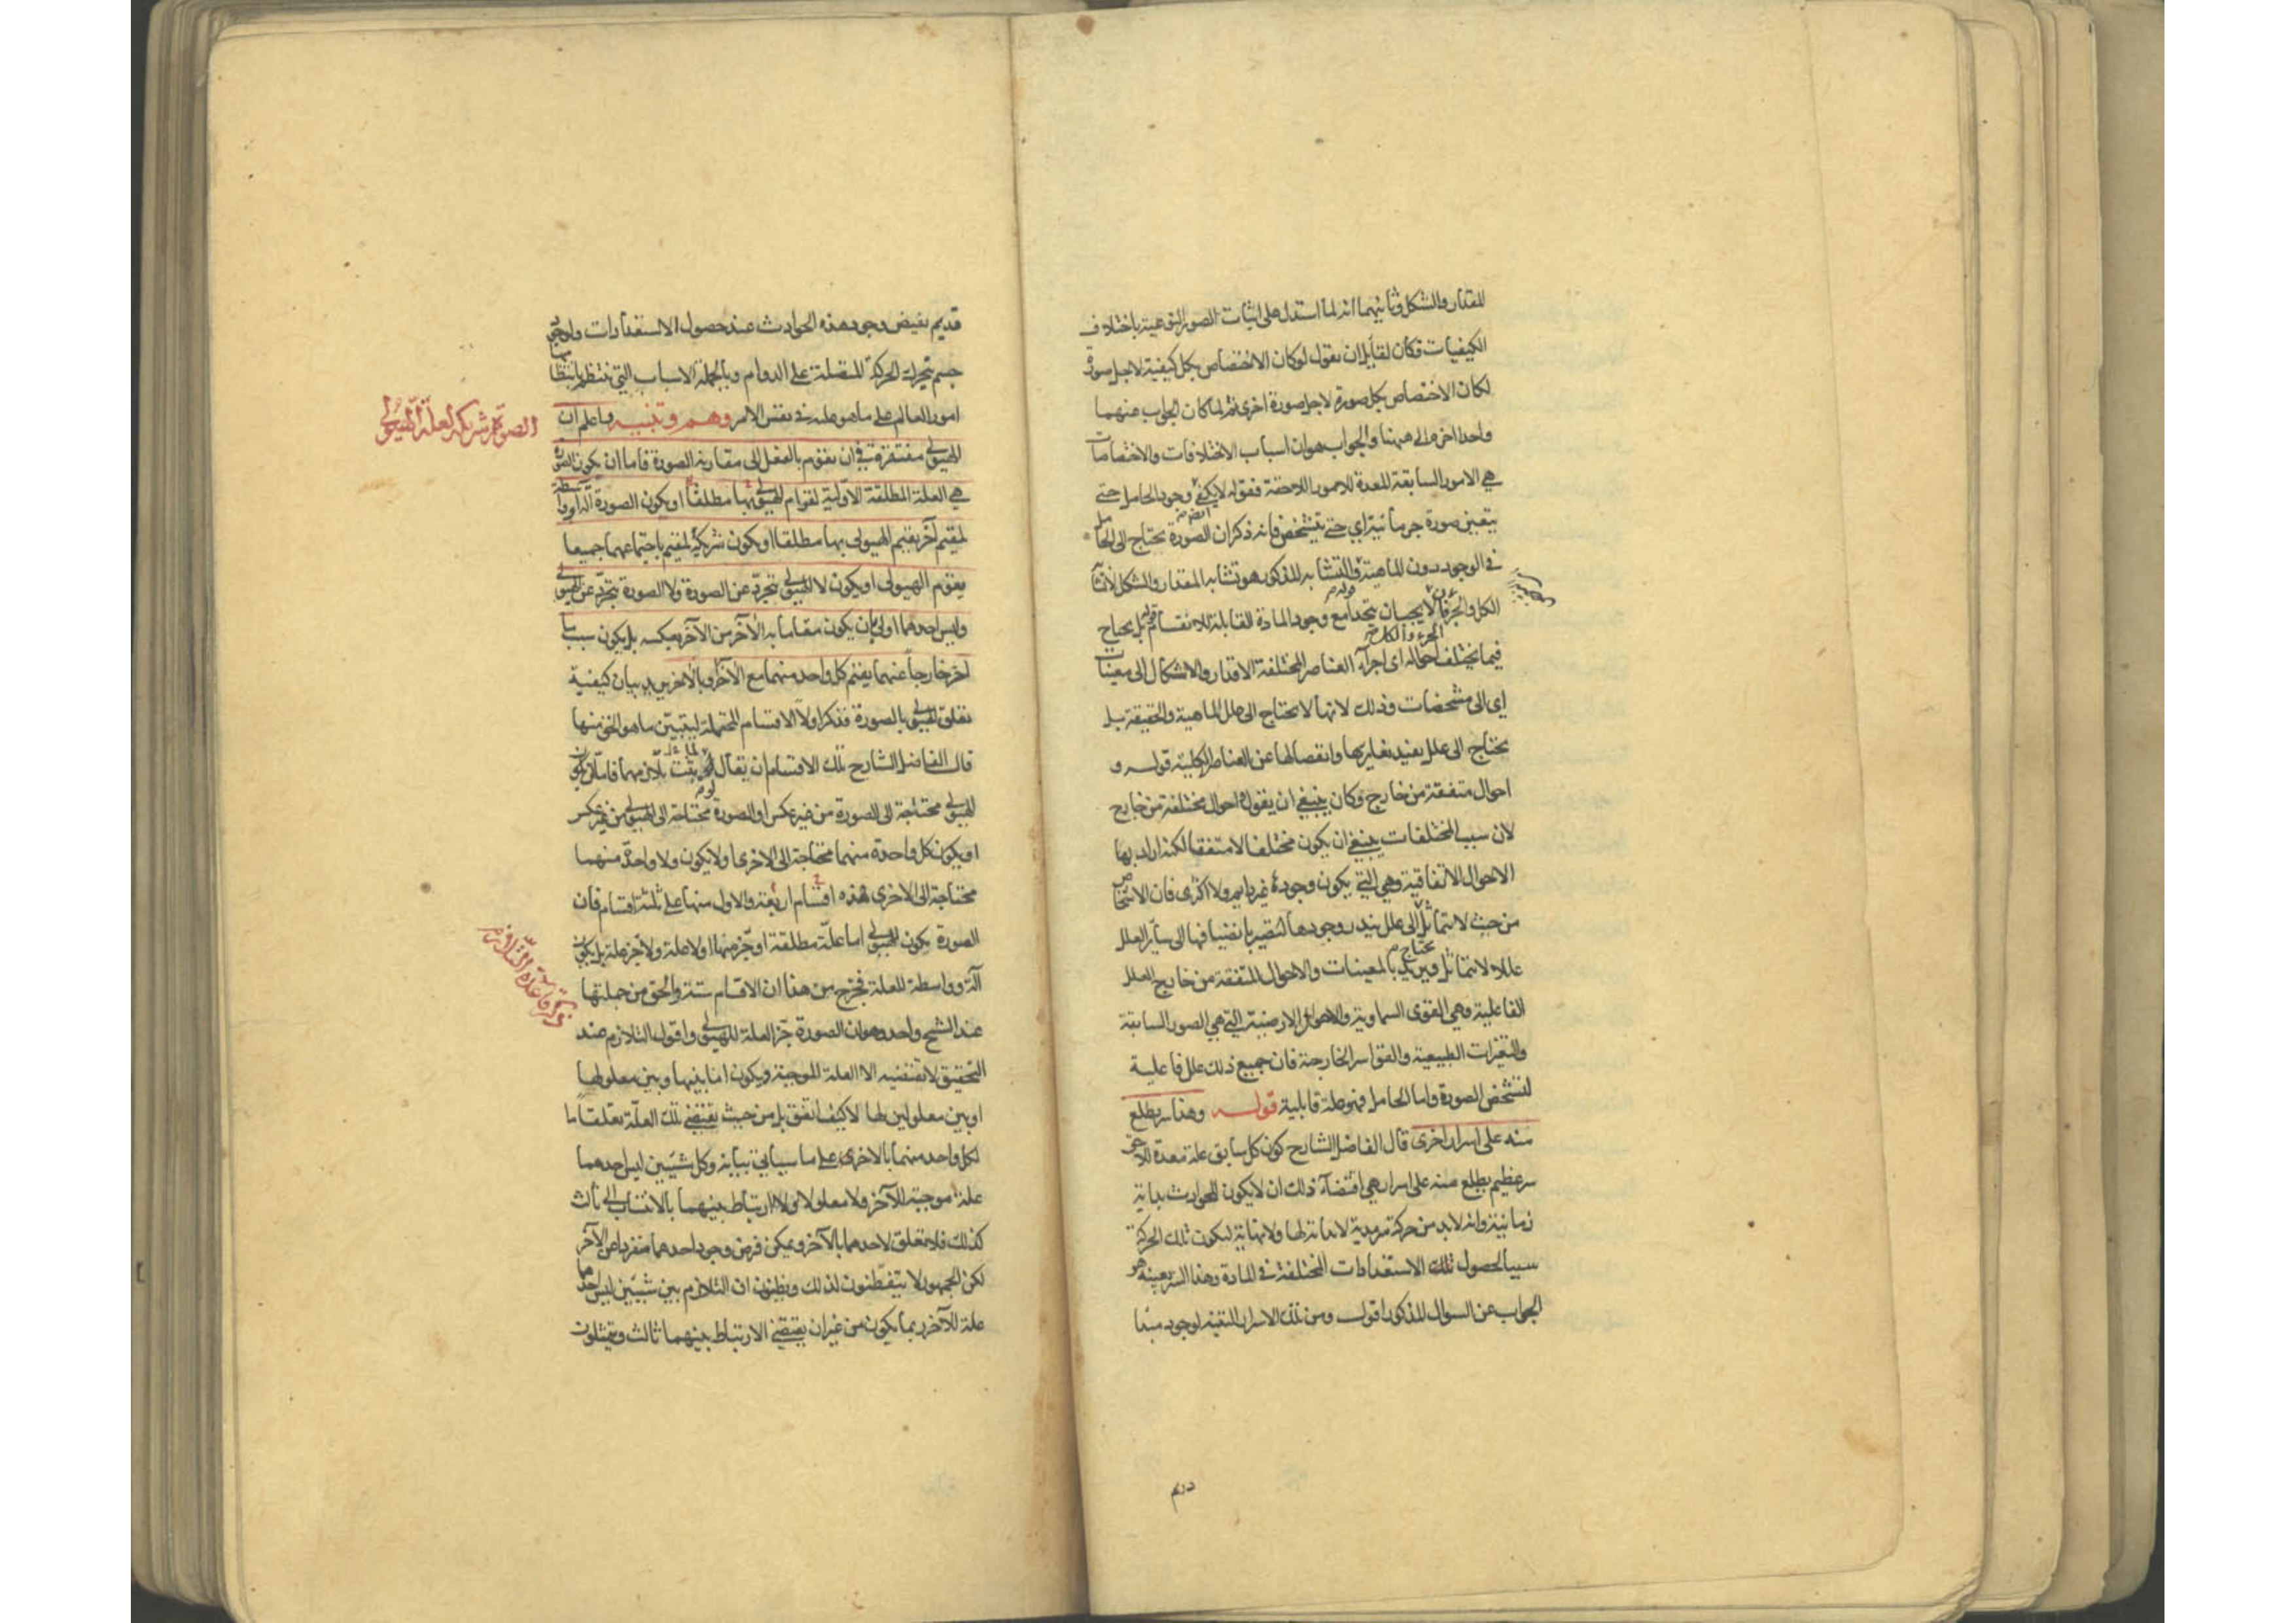 للمقدار والشكل وثانيهما انه لما استدل على اثبات الصور النوعية باختلاف
الكيفيات فكان لقايل ان يقول لو كان الاختصاص بكل كيفية لاجل صورة
لكان الاختصاص بكل صورة لاجل صورة اخرى ثم لما كان الجواب عنهما
واحدا اخره الى ههنا والجواب هو ان اسباب الاختلافات والاختصاصات
هي الامور السابقة المعدة للامور اللاحقة فقوله لا يكفي وجود الحامل حتى
يتعين صورة جرمانية اى حتى يتشخص فانه ذكر ان الصورة تحتاج الى الحامل
في الوجود دون الماهية والتشابه المذكور هو تشابه المقدار والشكل
الكل والجزء لا يجبان يتحدا مع وجود المادة القابلة للانقسام بل يحتاج
فيما يختلف احواله اى اجزاء العناصر المختلفة الاقدار والاشكال الى معينات
الجزء والكل
اى الى مشخصات وذلك لانها لا تحتاج الى علل الماهية والحقيقة بل
تحتاج الى علل يفيد تغايرها وانفصالها عن العناصر الكلية قوله و
احوال متفقة من خارج وكان ينبغي ان يقول احوال مختلفة من خارج
لان سبب المختلفات ينبغي ان يكون مختلفا لا متفقا لكنه اراد بها
الاحوال الاتفاقية وهي التي يكون وجوده غير دايم ولا اكثرى فان الاشخاص
من حيث لا تتماثل الى علل يندر وجودها لتصير بانضيافها الى سائر العلل
يحتاج
عللا لا تتماثل ويريد بالمعينات والاحوال المتفقة من خارج العلل
الفاعلية وهي القوى السماوية والاحوال الارضية التي هي الصور السابقة
والتغيرات الطبيعية والقواسر الخارجة فان جميع ذلك علل فاعلية
لتشخص الصورة واما الحامل فهو علة قابلية قوله وهذا سر يطلع
منه على اسرار اخرى قال الفاضل الشارح كون كل سابق علة معدة للاحق
سر عظيم يطلع منه على اسرار هي اقتضاء ذلك ان لا يكون للحوادث بداية
زمانية وانه لا بد من حركة سرمدية لا بداية لها ولا نهاية ليكون تلك الحركة
سببا لحصول تلك الاستعدادات المختلفة في المادة وهذا السر بعينه هو
الجواب عن السوال المذكور اقول ومن تلك الاسرار التنبه لوجود مبدا
قديم يفيض وجود هذه الحوادث عند حصول الاستعدادات ولوجود
جسم يتحرك الحركة المتصلة على الدوام وبالجملة الاسباب التي تنتظم بانتظامها
امور العالم على ما هو عليه في نفس الامر وهم وتنبيه واعلم ان
الصورة شريكة لعلة الهيولى
الهيولى مفتقرة في ان تقوم بالفعل الى مقارنة الصورة فاما ان يكون الصورة
هي العلة المطلقة الاولية لقوام الهيولى بها مطلقا او يكون الصورة آلة او واسطة
لمقيم آخر يقيم الهيولى بها مطلقا او يكون شريكة لمقيم باجتماعهما جميعا
يقوم الهيولى او يكون لا الهيولى يتجرد عن الصورة ولا الصورة يتجرد عن الهيولى
وليس احدهما اولى بان يكون مقاما به الآخر من الآخر بعكسه بل يكون سبب ما
اخر خارجا عنهما يقيم كل واحد منهما مع الآخر وبالآخر يريد بيان كيفية
تعلق الهيولى بالصورة فذكر اولا الاقسام المحتملة ليتبين ما هو الحق منها
قال الفاضل الشارح تلك الاقسام ان يقال لما ثبت تلازمهما فاما ان يكون
الهيولى محتاجة الى الصورة من غير عكس او الصورة محتاجة الى الهيولى من غير عكس
او يكون كل واحدة منهما محتاجة الى الاخرى او لا يكون ولا واحدة منهما
محتاجة الى الاخرى هذه اقسام اربعة والاول منها على ثلثة اقسام فان
الصورة يكون للهيولى اما علة مطلقة او جزء منها او لا علة ولا جزء علة بل يكون
آلة وواسطة للعلة فخرج من هذا ان الاقسام ستة والحق من جملتها
عند الشيخ واحد وهو ان الصورة جزء العلة للهيولى واقول التلازم عند
التحقيق لا يقتضيه الا العلة الموجبة ويكون اما بينها وبين معلولها
او بين معلولين لها لا كيف اتفق بل من حيث يقتضي تلك العلة تعلقا ما
لكل واحد منهما بالاخرى على ما سياتي بيانه وكل شيئين ليس احدهما
علة موجبة للآخر ولا معلولا له ولا ارتباط بينهما بالانتساب الى ثالث
كذلك فلا تعلق لاحدهما بالآخر ويمكن فرض وجود احدهما منفردا عن الآخر
لكن الجمهور لا يتفطنون لذلك ويظنون ان التلازم بين شيئين ليس احدهما
علة للآخر ربما يكون من غير ان يقتضي الارتباط بينهما ثالث ويتمثلون